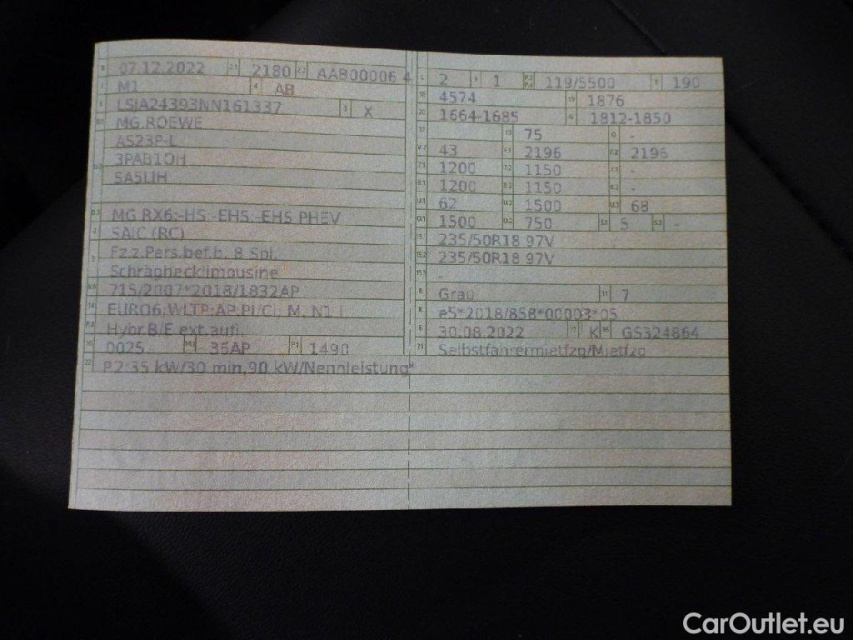 07.12.2022 2180 AAB00006 4
M1 AB
LSJA24393NN161337 X
MG ROEWE
AS23P-L
3PAB1OH
SA5LIH
MG RX6,-HS,-EHS,-EHS PHEV
SAIC (RC)
Fz.z.Pers.bef.b. 8 Spl.
Schräghecklimousine
715/2007*2018/1832AP
EURO6;WLTP;AP;PI/CI; M, N1 I
Hybr.B/E ext.aufl.
0025 36AP 1490
P.2:35 kW/30 min,90 kW/Nennleistung*
2 1 119/5500 190
4574 1876
1664-1685 1812-1850
75 -
43 2196 2196
1200 1150 -
1200 1150 -
62 1500 68
1500 750 5 -
235/50R18 97V
235/50R18 97V
-
Grau 7
e5*2018/858*00003*05
30.08.2022 K GS324864
Selbstfahrermietfzg/Mietfzg
CarOutlet.eu